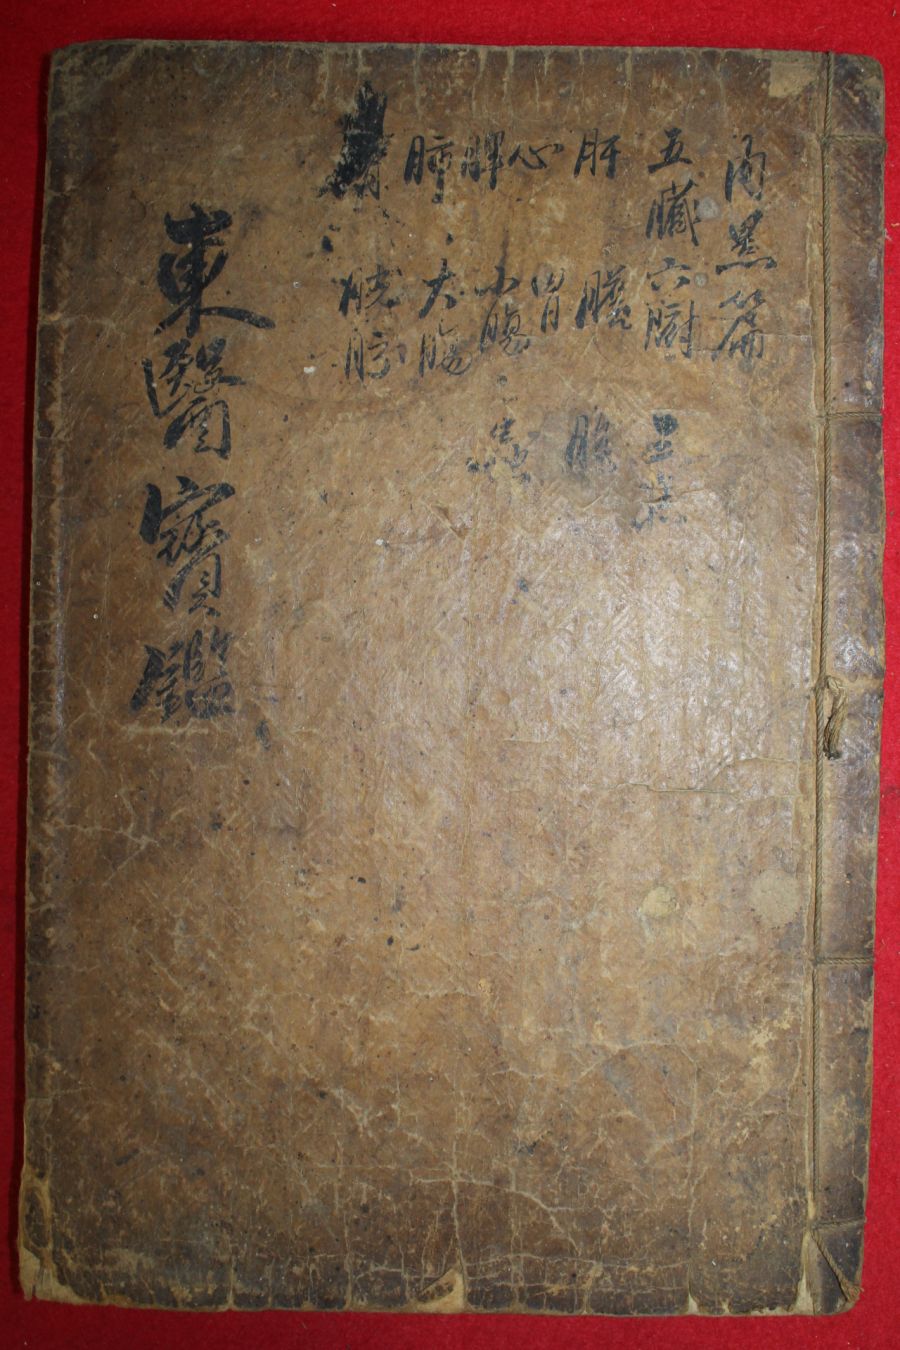 內景篇
五臟六腑 三焦
肝 膽 胞
心 胃
脾 小腸 蟲
肺 大腸
腎 胱膀
東醫寶鑑